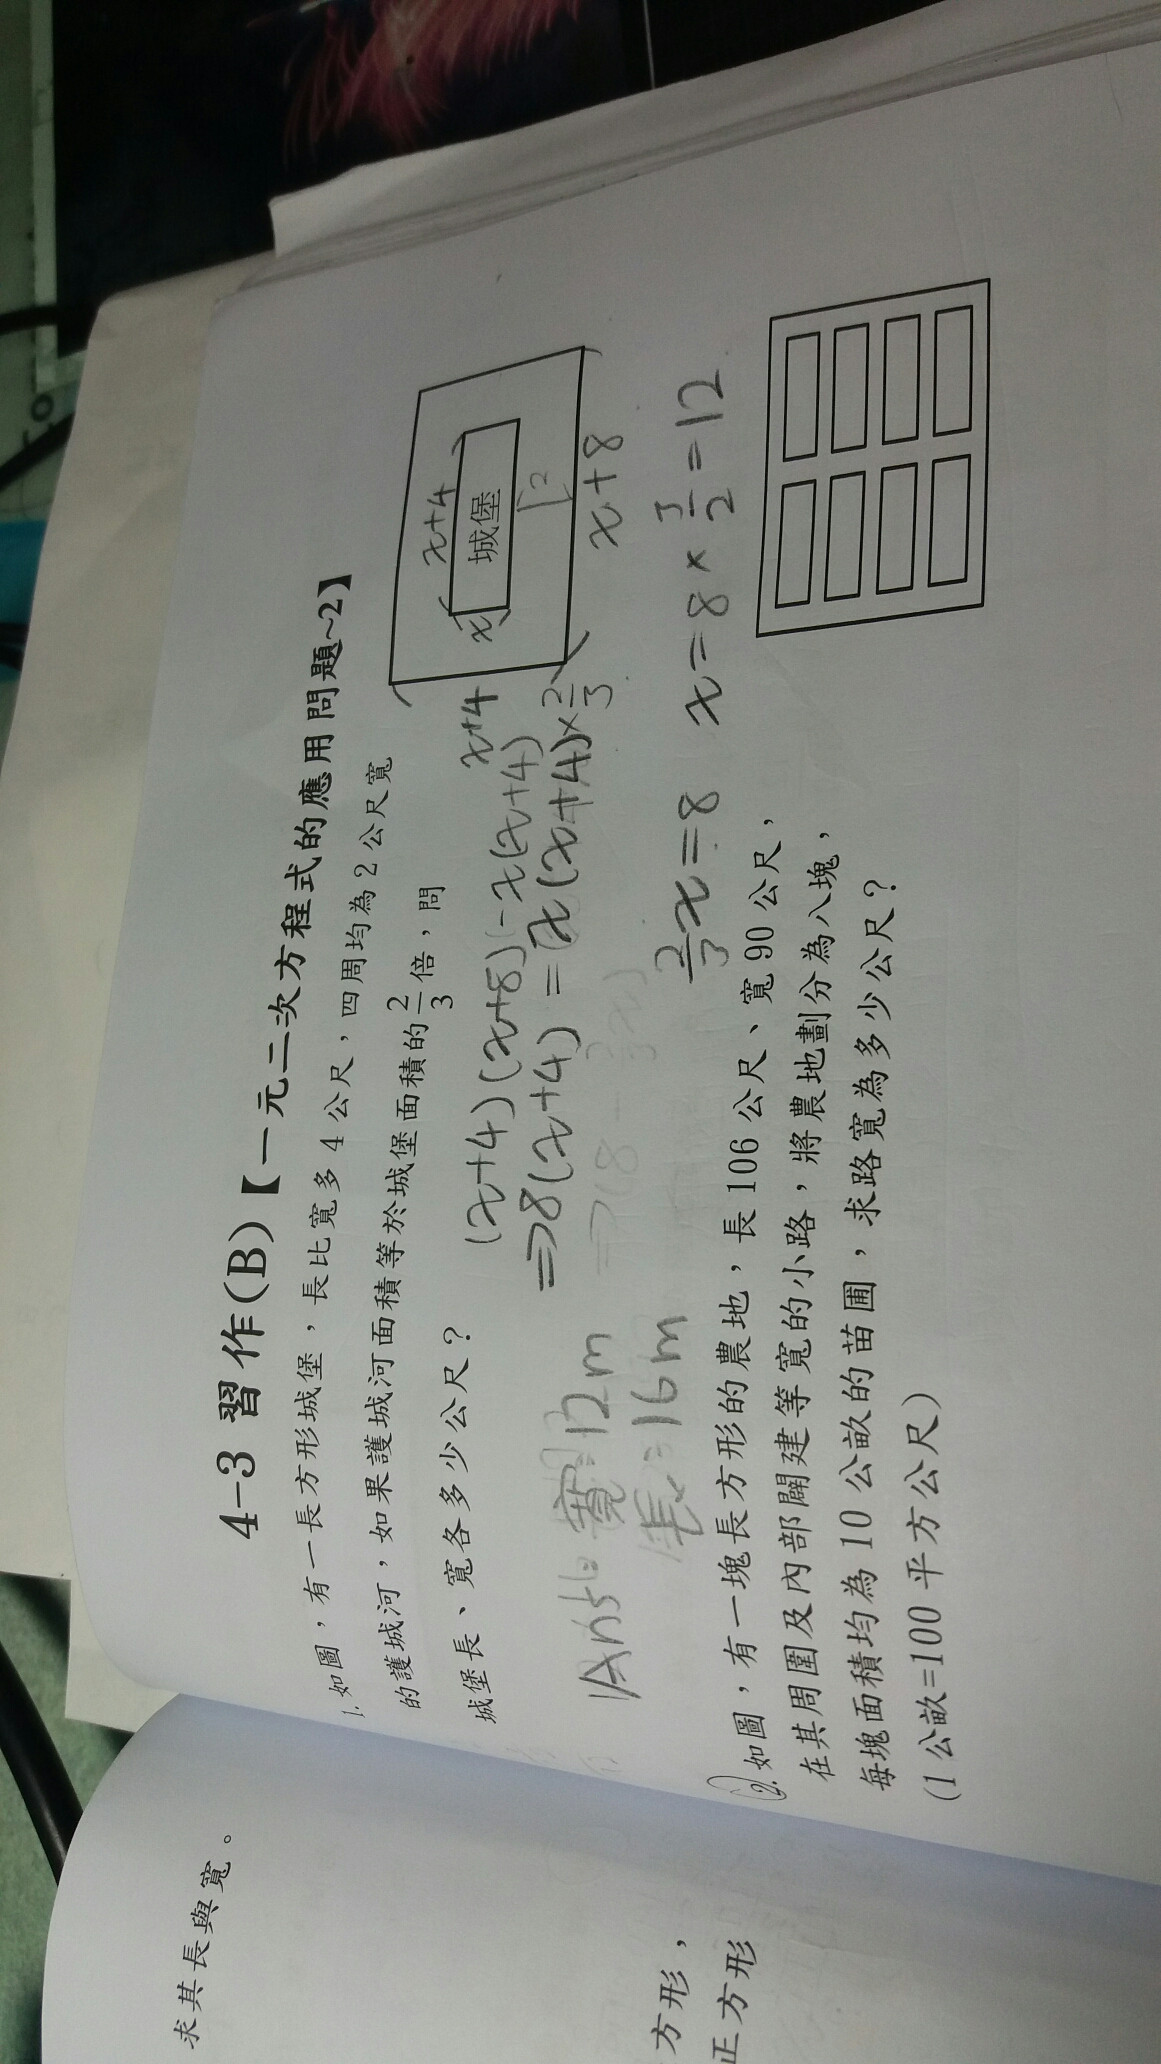 求其長與寬。
方形，
正方形
4-3 習作(B)【一元二次方程式的應用問題~2】
1. 如圖，有一長方形城堡，長比寬多 4 公尺，四周均為 2 公尺寬
的護城河，如果護城河面積等於城堡面積的 2/3 倍，問
城堡長、寬各多少公尺？
x+4
x
城堡
2
x+4
x+8
(x+4)(x+8)-x(x+4)
=>8(x+4)=x(x+4)×2/3
2/3x=8
x=8×3/2=12
Ans: 寬:12m
長:16m
2. 如圖，有一塊長方形的農地，長 106 公尺、寬 90 公尺，
在其周圍及內部闢建等寬的小路，將農地劃分為八塊，
每塊面積均為 10 公畝的苗圃，求路寬為多少公尺？
(1 公畝=100 平方公尺)